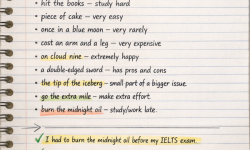 • hit the books – study hard
• piece of cake – very easy
• once in a blue moon – very rarely
• cost an arm and a leg – very expensive
• on cloud nine – extremely happy
• a double-edged sword – has pros and cons
• the tip of the iceberg – small part of a bigger issue.
• go the extra mile – make extra effort.
• burn the midnight oil – study/work late.
✓ I had to burn the midnight oil before my IELTS exam.